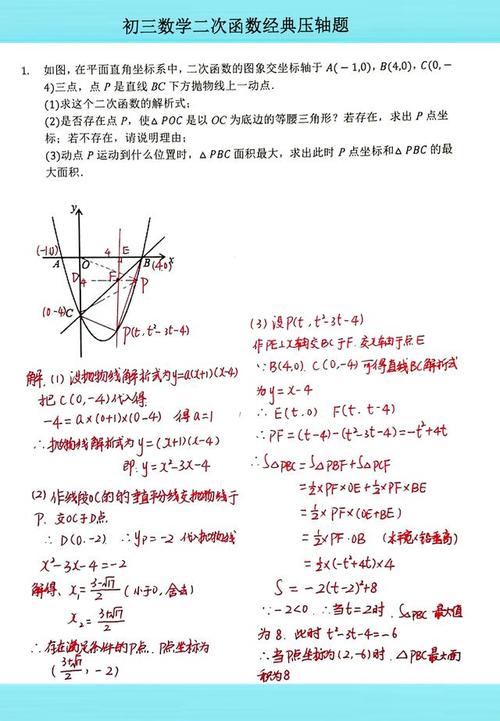 初三数学二次函数经典压轴题
1. 如图,在平面直角坐标系中,二次函数的图象交坐标轴于 A(−1,0), B(4,0), C(0,−
4)三点,点 P 是直线 BC 下方抛物线上一动点.
(1)求这个二次函数的解析式;
(2)是否存在点 P, 使△POC 是以 OC 为底边的等腰三角形? 若存在, 求出 P 点坐
标; 若不存在, 请说明理由;
(3)动点 P 运动到什么位置时, △PBC 面积最大, 求出此时 P 点坐标和△PBC 的最
大面积.
y
(-1,0) 4 E
A O B x
(4,0)
D F P
(0,-4) C
P(t, t²-3t-4)
解: (1) 设抛物线解析式为y=a(x+1)(x-4)
把C(0,-4)代入得.
-4=a×(0+1)×(0-4) 得a=1
∴抛物线解析式为y=(x+1)(x-4)
即: y=x²-3x-4
(2) 作线段OC的的垂直平分线交抛物线于
P. 交OC于D点.
∴D(0,-2) ∴yP=-2 代入抛物线
x²-3x-4=-2
解得、x₁=(3-√17)/2 (小于0,舍去)
x₂=(3+√17)/2
∴存在满足条件的P点. P点坐标为
((3+√17)/2, -2)
(3) 设P(t, t²-3t-4)
作PE⊥x轴交BC于F. 交x轴于点E
∵B(4,0). C(0,-4) 可得直线BC解析式
为y=x-4
∴E(t,0) F(t, t-4)
∴PF=(t-4)-(t²-3t-4)=-t²+4t
∴S△PBC=S△PBF+S△PCF
=½×PF×OE+½×PF×BE
=½×PF×(OE+BE)
=½×PF·OB (水平宽×铅垂高)
=½×(-t²+4t)×4
S=-2(t-2)²+8
∵-2<0. ∴当t=2时. S△PBC最大值
为8. 此时t²-3t-4=-6
∴当P点坐标为(2,-6)时. △PBC最大面
积为8